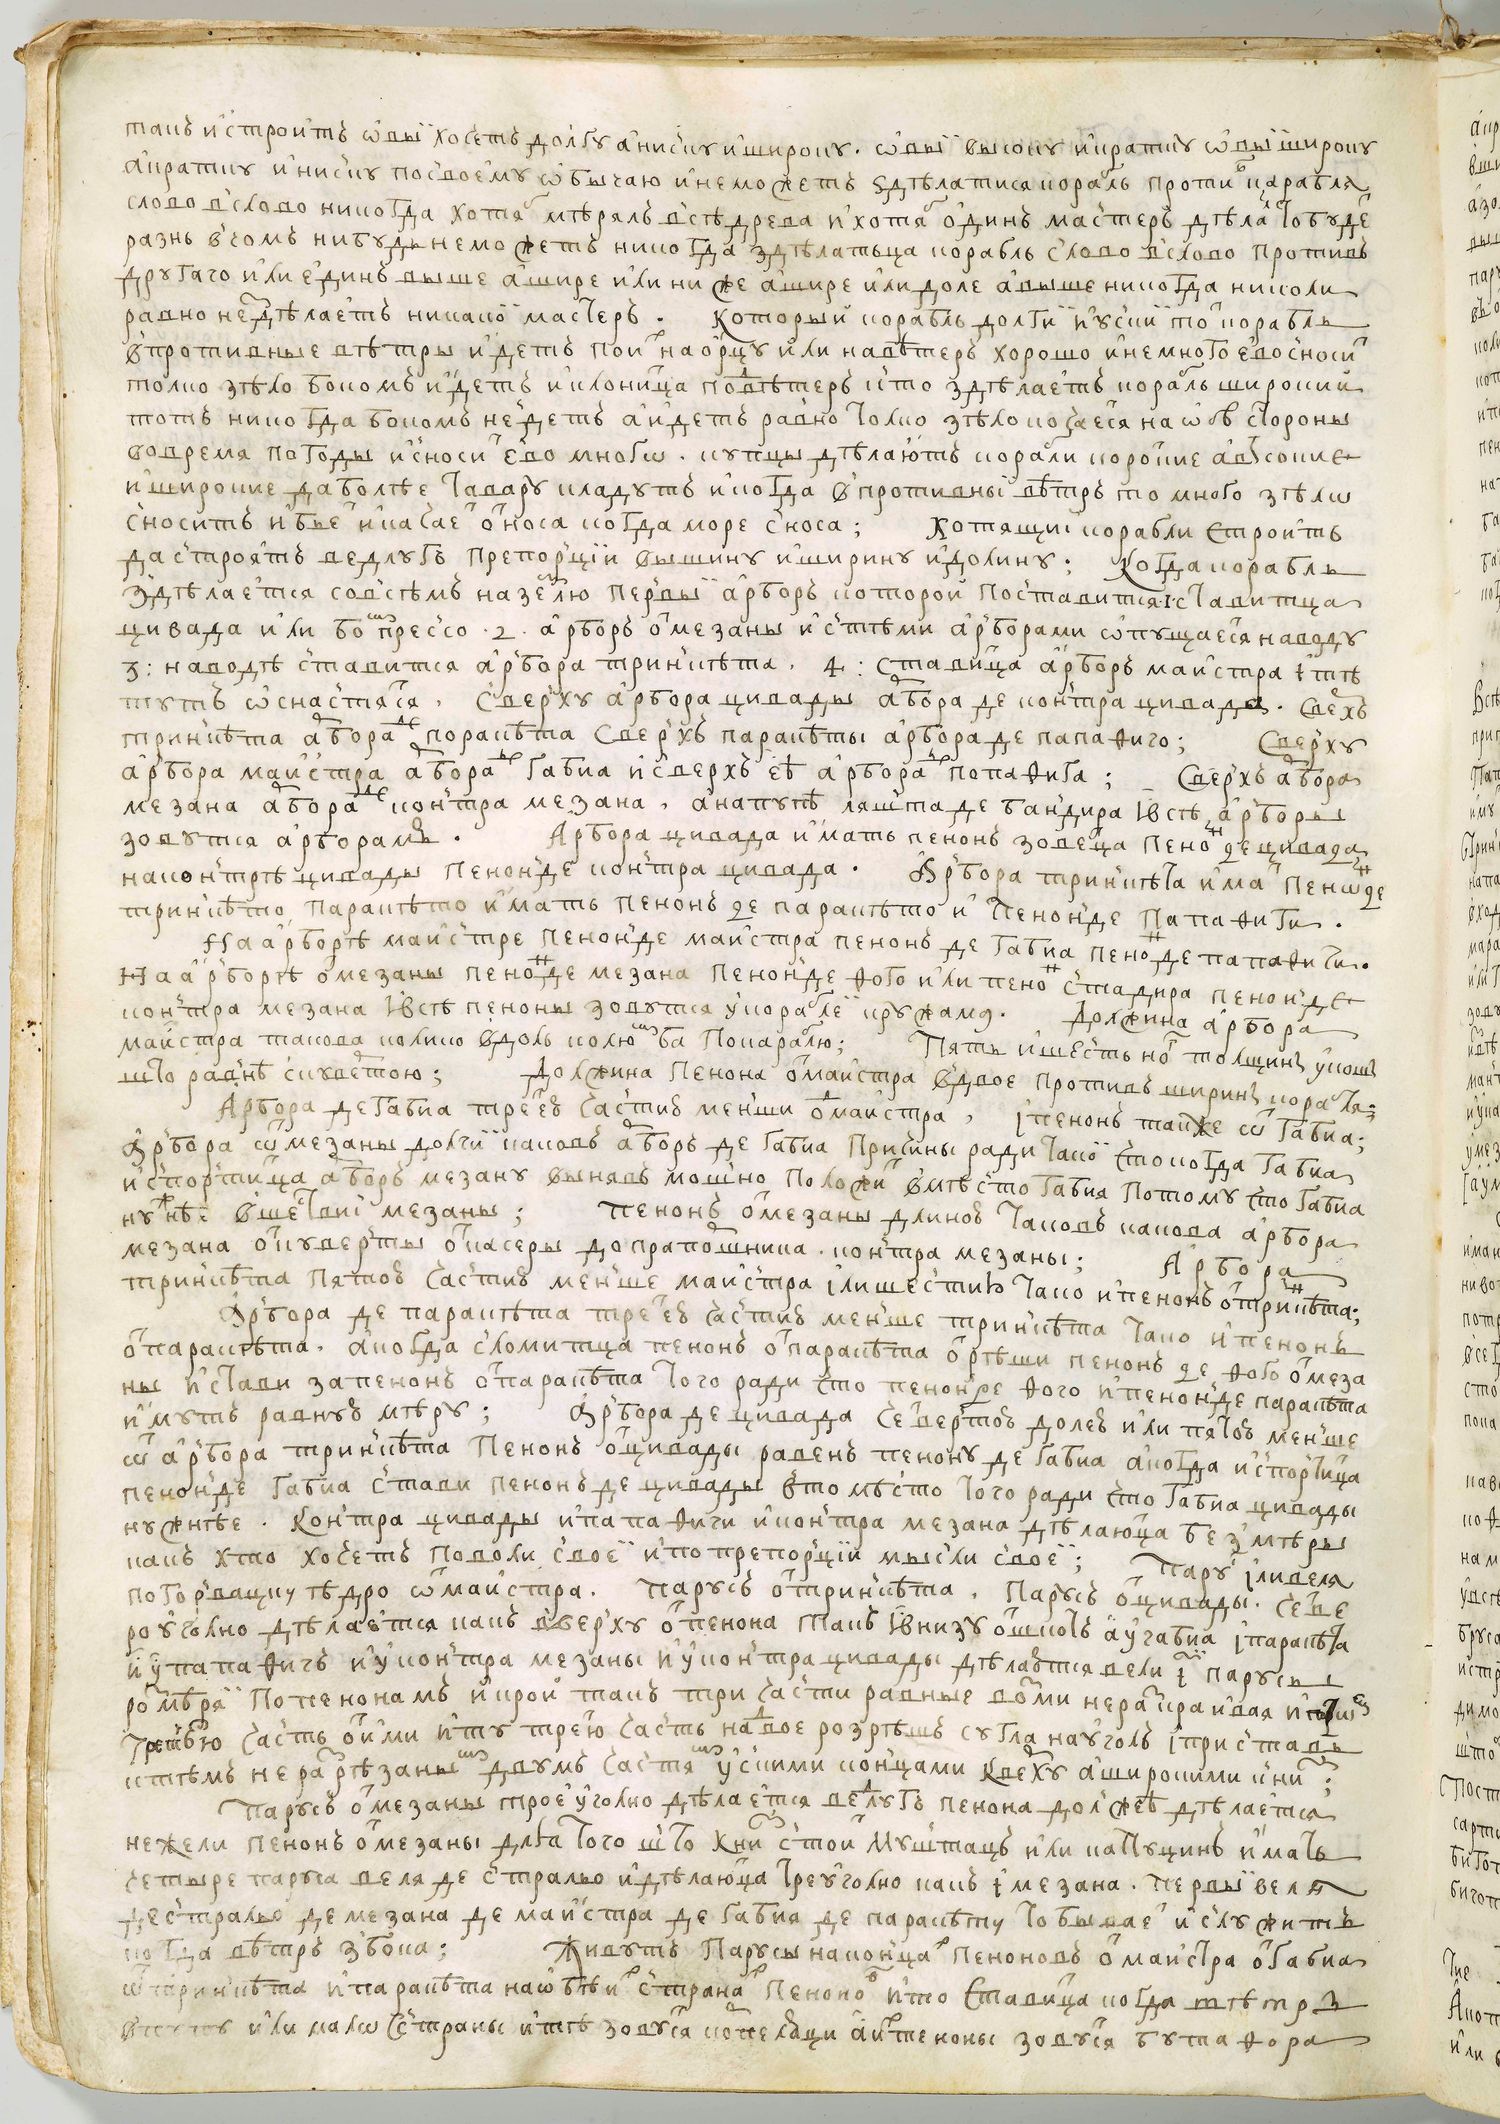 такъ и строитъ ѡвыї хочетъ долгу а ниску и широку. ѡвыї высоку и кратку ѡвыї широку
а кратку и ниску по своему ѡбычаю и не можетъ ѕдѣлатися корабль проти карабля
слово в слово никогда хотя мѣрялъ всѣ древа и хотя одинъ мастеръ дѣлал то буде
разнь в чомъ нибудь не можетъ никогда здѣлатьца корабль слово в слово противъ
другаго или единъ выше а шире или ниже а шире или доле а выше никогда николи
равно не дѣлаетъ никакої мастеръ. Который корабль долгї и ускї тои корабль
в противные вѣтры идетъ пои на орцу или на вѣтеръ хорошо и немного ево сноси
толко зѣло бокомъ идетъ и клонища по вѣтеръ что здѣлаетъ корабль широкий
тотъ никогда бокомъ не идетъ а идетъ равно толко зѣло качается на ѡбѣ стороны
во время погоды и сноси ево многѡ. купцы дѣлаютъ корабли короткие а высокие
и широкие да болѣе тавару кладутъ и когда в противны вѣтръ то много зѣлѡ
сноситъ и бье и качае от носа когда море с носа; Хотящиї корабли строить
да строятъ ведлугъ препорциї вышину и ширину и долину; Когда корабль
здѣлается совсѣмъ на землю первыї арборъ которой поставится 1 ставитца
цивада или бопрессо .2. арборъ от мезаны и с тѣми арборами ѡпущается на воду
3: на водѣ ставится арбора тринкѣта. 4: ставица арборъ маистра і тѣ
тутъ ѡснастятся. Сверху арбора цивады арбора де контра цивады. Сверхъ
тринкѣта арбора де паракѣта Сверхъ паракѣты арбора де папафиго; Сверху
арбора маистра арбора де габиа и сверхъ еѣ арбора де папафига; Сверхъ арбора
мезана арбора де контра мезана. а на пупѣ ляшта де бандира і всѣ арборы
зовутся арборами. Арбора цивада имать пенонъ зовеца пенон де цивада
на контрѣ цивады пенонъ де контра цивада. Арбора тринкѣта има пенон де
тринкѣто паракѣто имать пенонъ де паракѣто и пенонъ де папафиги.
На арборѣ маистре пенонъ де маистра пенонъ де габиа пенон де папафиги.
На арборѣ от мезаны пенон де мезана пенонъ де фого или пенон стадира пенонъ де
контра мезана і всѣ пеноны зовутся у кораблеї кружами. Должина арбора
маистра такова колико вдоль колюмба по караблю; Пять и шесть ног толщинъ у кош
што равнѣ с кувертою; Должина пенона от маистра вдвое противъ ширинъ корабля;
Арбора де габиа третеѣ частиъ менши от маистра, і пенонъ также от габиа;
Арбора от мезаны долгиї каковъ арборъ де габиа причины ради такої что когда габиа
испортица арборъ мезану вынявъ мошно положи вмѣсто габия потому что габиа
нужнѣе в шествиї мезаны; Пенонъ от мезаны длиною таковъ какова арбора
мезана от куверты от касеры до прапошника. контра мезаны; Арбора
тринкѣта пятою частию менше маистра или шестию тако и пенонъ от тринкѣта;
Арбора де паракѣта третеѣ частиъ менше тринкѣта тако и пенонъ
от паракѣта. а когда сломитца пенонъ от паракѣта отрѣши пенонъ де фого от меза
ны и стави за пенонъ от паракѣта того ради что пенонъ де фого и пенонъ де паракѣта
имутъ равную мѣру; Арбора де цивада четвертою долею или пятою менше
от арбора тринкѣта Пенонъ от цивады равенъ пенону де габиа а когда испортица
пенонъ де габиа стави пенонъ де цивады в то мѣсто того ради что габиа цивады
нужнѣе. Контра цивады и папафиги и контра мезана дѣлаюца без мѣры
какъ хто хочетъ по воли своеї и по препорциї мысли своеї; Парус іли веля
по горвацку ѣдро от маистра. Парусъ от тринкѣта. Парусъ от цивады. четве
роуголно дѣлается какъ вверху от пенона такъ і внизу от шкотъ а у габиа і паракѣта
и у папафигъ и у контра мезаны и у контра цивады дѣлаются вели і парусы
розмѣряї по пенонамъ и крои такъ три части равные возми не раскраивая и
третью часть отими и ту трею часть надвое розрѣшъ с угла на уголъ і приставь
к тѣмъ не разрѣзанымъ двумъ частямъ ускими концами кверху а широкими книзу;
Парусъ от мезаны троеуголно дѣлается ведлугъ пенона должеѣ дѣлается
нежели пенонъ от мезаны для того што книзу стои Муштацъ или капуцинъ имать
четыре паруса веля де стральо и дѣлаюца треуголно какъ і мезана. первыї веля
де стральо де мезана де маистра де габия де паракѣту то бывае и служитъ
когда вѣтръ з бока; Живутъ парусы на концах пеноновъ от маистра от габиа
от тринкѣта и паракѣта на ѡбѣи странах пенонов и то ставица когда вѣтръ
или малѡ с страны и тѣ зовутся копеладци а и пеноны зовуся бутафора